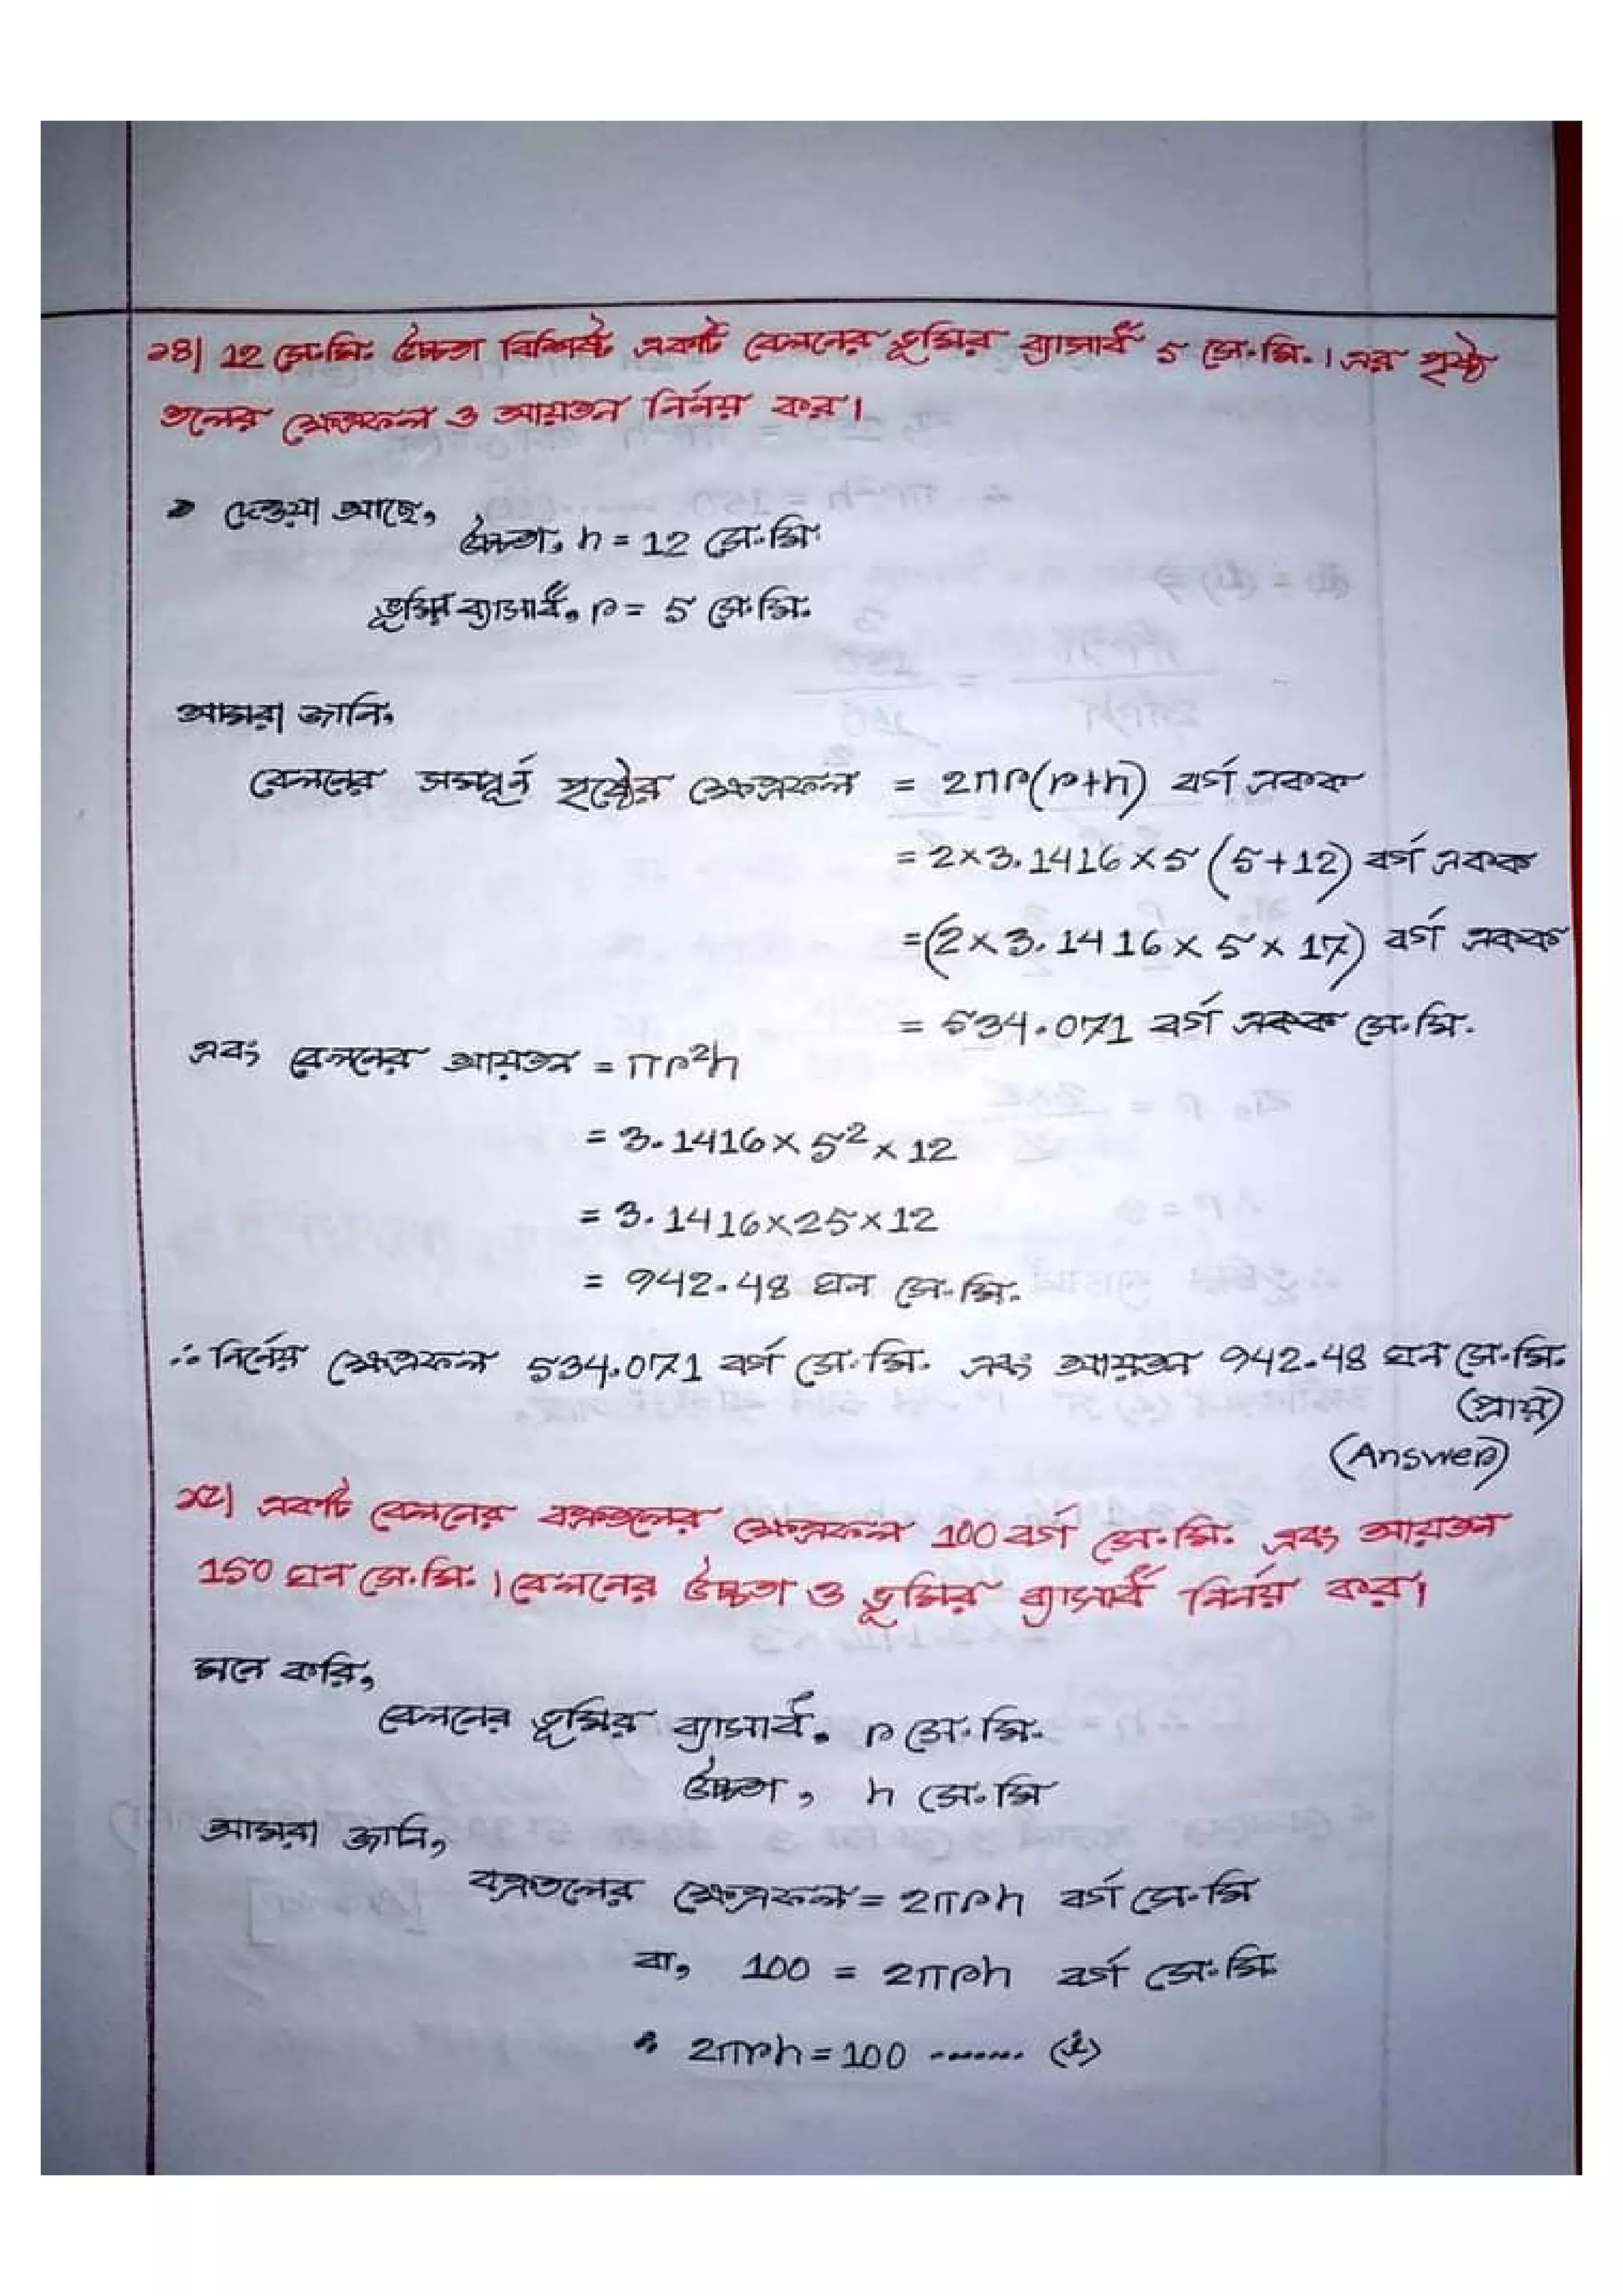 ১৪| 12 সে.মি. উচ্চতা বিশিষ্ট একটি বেলনের ভূমির ব্যাসার্ধ 5 সে.মি.। এর পৃষ্ঠ
তলের ক্ষেত্রফল ও আয়তন নির্নয় কর।
দেওয়া আছে,
উচ্চতা, h = 12 সে.মি.
ভূমির ব্যাসার্ধ, r = 5 সে.মি.
আমরা জানি,
বেলনের সম্পূর্ন পৃষ্ঠের ক্ষেত্রফল = 2πr(r+h) বর্গ একক
= 2×3.1416×5 (5+12) বর্গ একক
=(2×3.1416×5×17) বর্গ একক
= 534.071 বর্গ সে.মি.
এবং বেলনের আয়তন = πr²h
= 3.1416×5²×12
= 3.1416×25×12
= 942.48 ঘন সে.মি.
∴ নির্নেয় ক্ষেত্রফল 534.071 বর্গ সে.মি. এবং আয়তন 942.48 ঘন সে.মি.
(প্রায়)
(Answer)
১৫| একটি বেলনের বক্রতলের ক্ষেত্রফল 100 বর্গ সে.মি. এবং আয়তন
150 ঘন সে.মি.। বেলনের উচ্চতা ও ভূমির ব্যাসার্ধ নির্নয় কর।
মনে করি,
বেলনের ভূমির ব্যাসার্ধ, r সে.মি.
উচ্চতা, h সে.মি
আমরা জানি,
বক্রতলের ক্ষেত্রফল = 2πrh বর্গ সে.মি
বা, 100 = 2πrh বর্গ সে.মি
∴ 2πrh = 100 ....... (i)